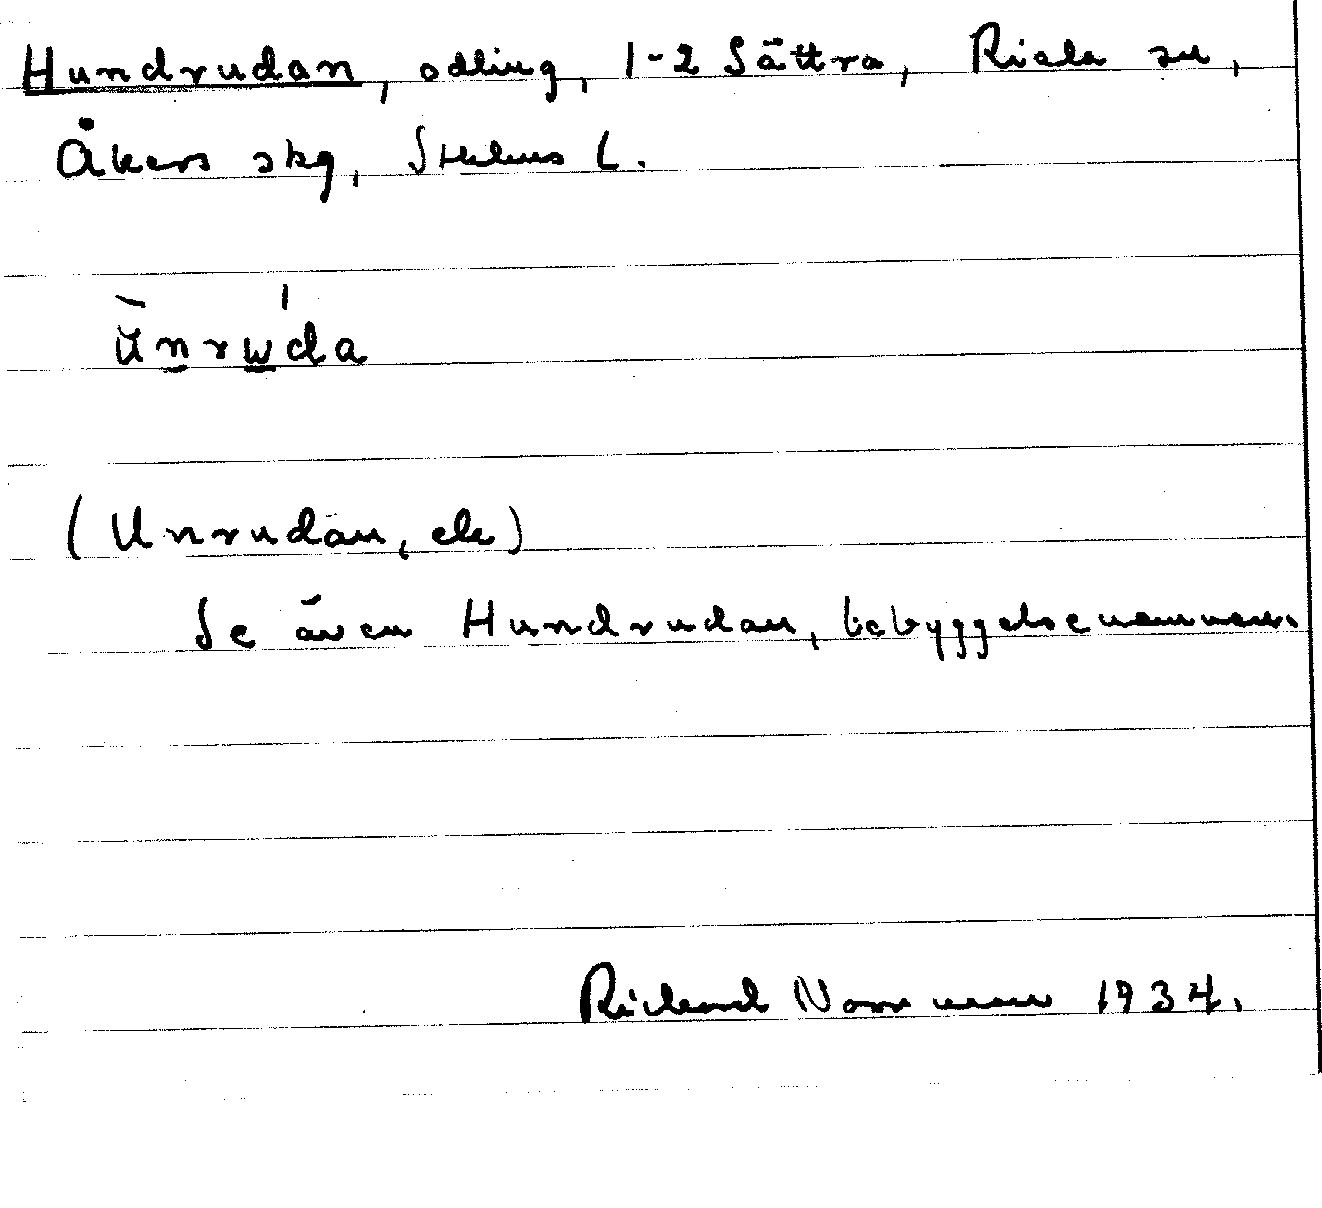 Hundrudan, odling, 1-2 Sättra, Riala sn,
Åkers skg, Sthlms L.
ùnrẃda
(Unrudan, ele)
Se även Hundrudan, bebyggelsenamnen.
Richard Norrman 1934.